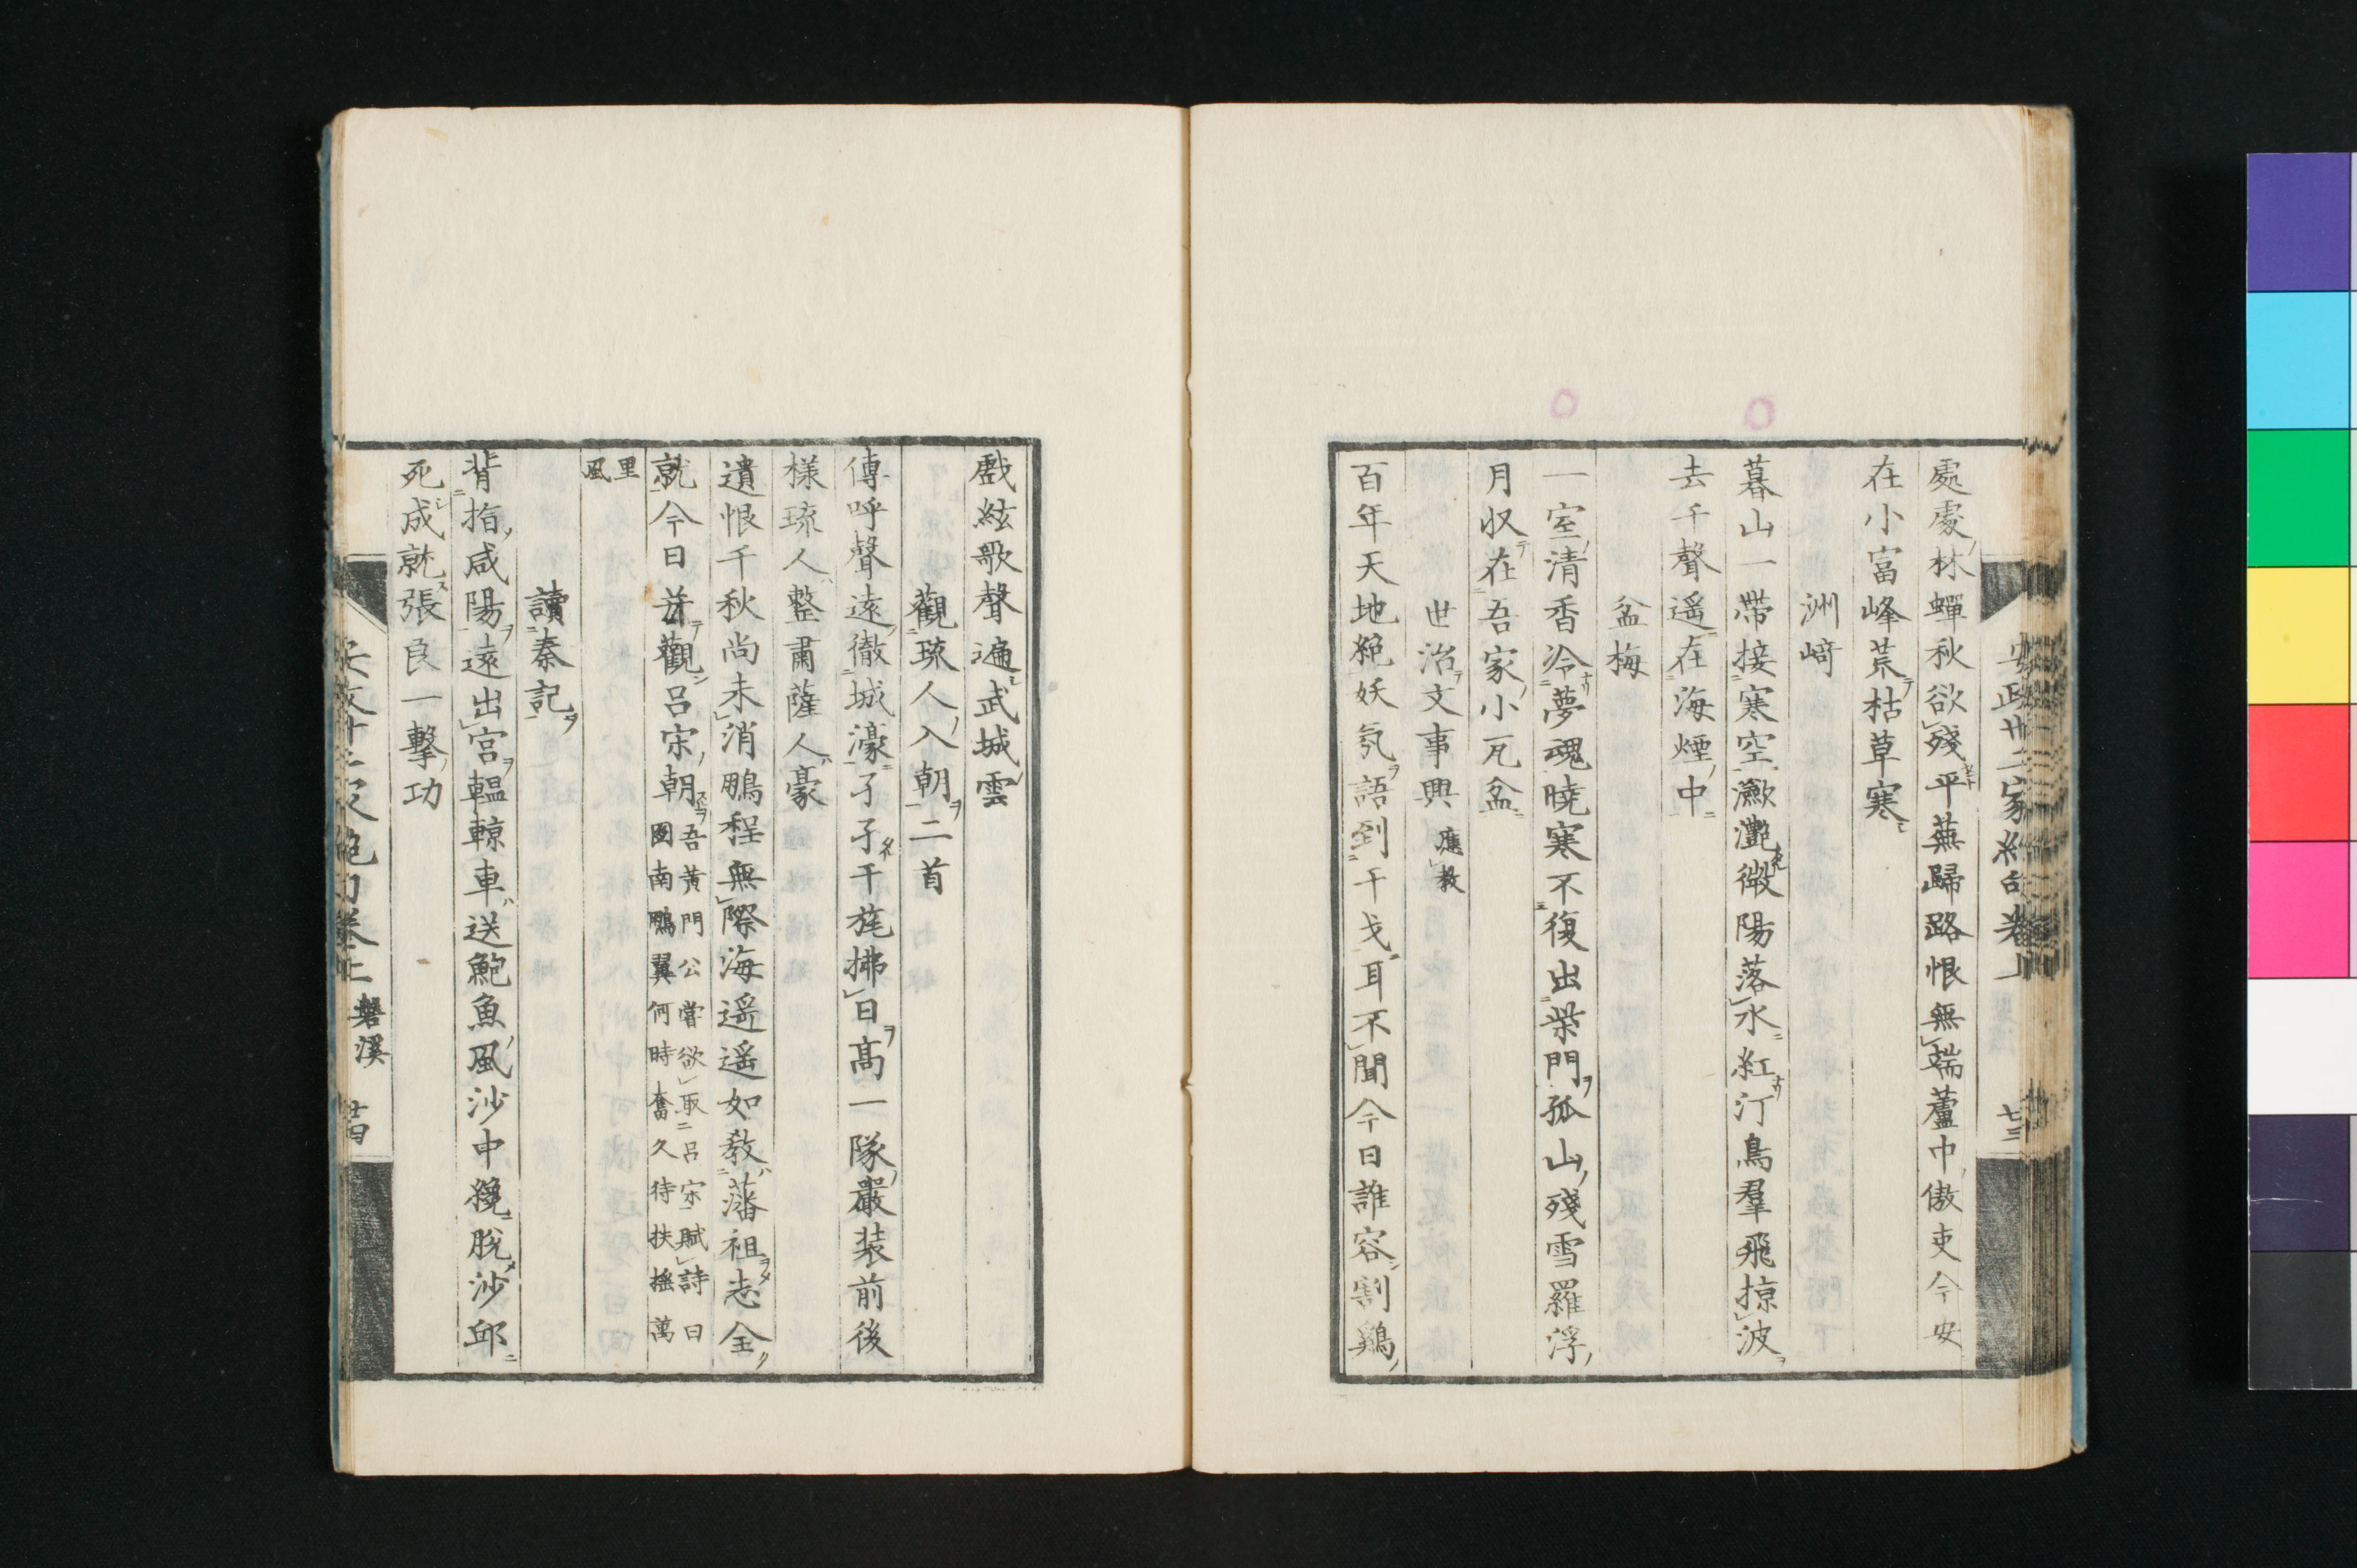 處處林蟬秋欲殘平蕪歸路恨無端蘆中傲吏今安
在小富峰荒枯草寒
洲﨑
暮山一帶接寒空瀲灔微陽落水紅汀鳥羣飛掠波
去千聲遥在海煙中
盆梅
一室清香冷夢魂曉寒不復出柴門孤山殘雪羅浮
月収在吾家小瓦盆
世治文事興 應教
百年天地絶妖氛語到干戈耳不聞今日誰容割鷄
戲絃歌聲遍武城雲
觀琉人入朝二首
傳呼聲遠徹城濠孑孑干旄拂日髙一隊嚴装前後
様琉人整肅薩人豪
遺恨千秋尚未消鵬程無際海遥遥如教藩祖志全
就今日并觀吕宋朝 吾黄門公嘗欲取吕宋賦詩曰
圖南鵬翼何時奮久待扶摇萬
里
風
讀秦記
背指咸陽遠出宮轀輬車送鮑魚風沙中纔脱沙邱
死成就張良一擊功
安政卅二家絶句卷上 磐溪